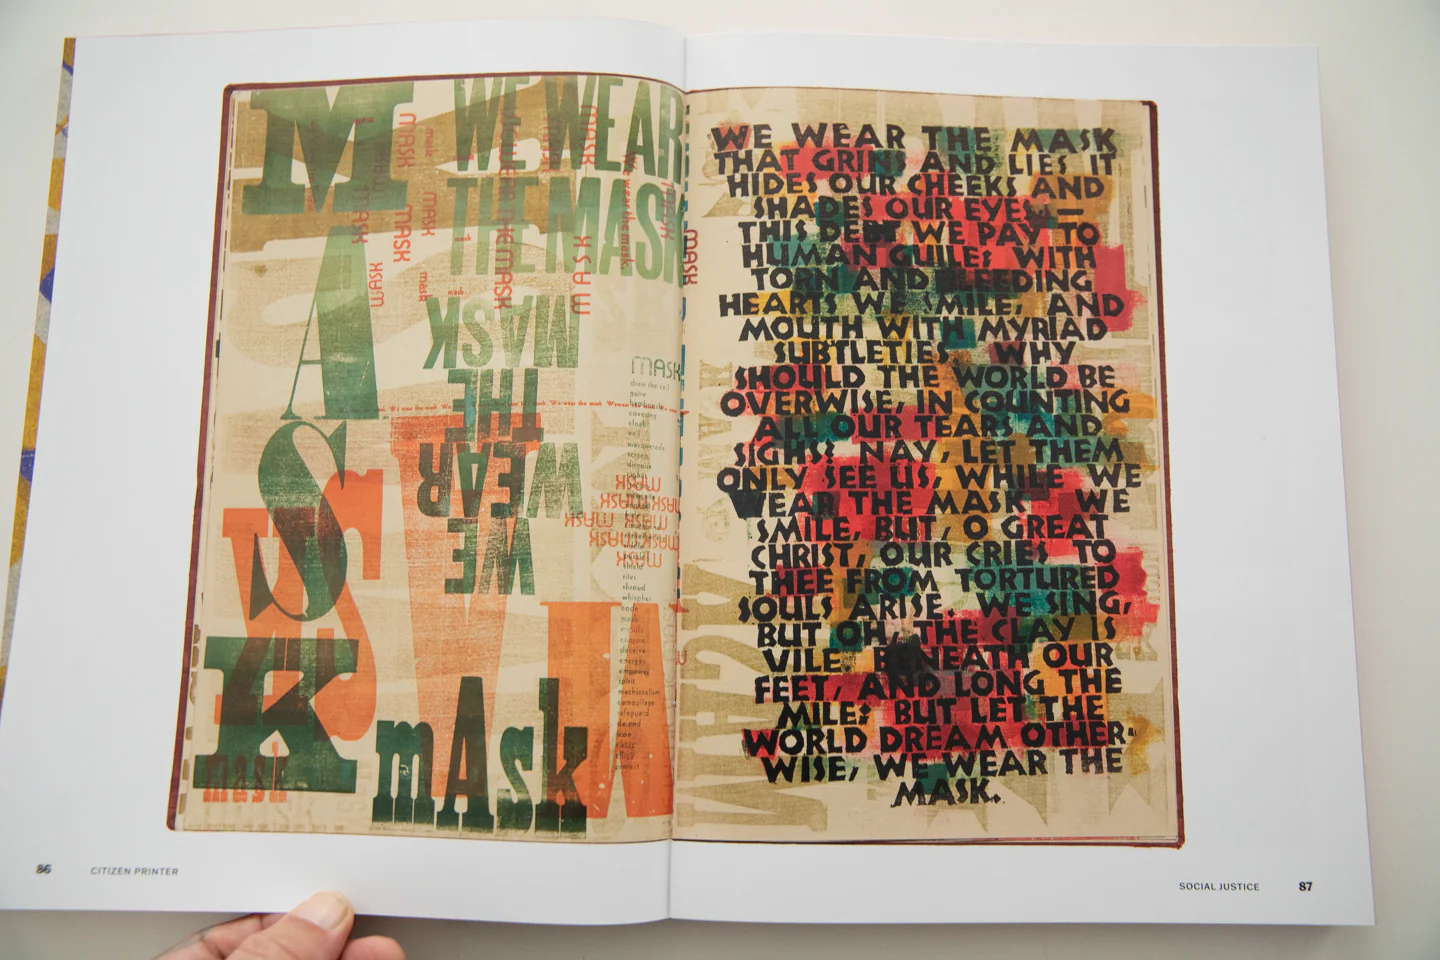 M
A
S
K
WE WEAR
THE MASK
MASK
THE
WEAR
WE
MASK
mask
MASK
MASK
MASK
MASK
MASK
mask
MASK
MASK
draw the veil
guise
covering
cloak
veil
masquerade
screen
disguise
MASK
MASK
MASK MASK
MASK MASK
MASK MASK
MASK
shield
rites
shroud
whisper
code
mesh
conjure
deceive
energy
spirit
machiavelism
camouflage
safeguard
defend
icon
mAsk
mask
86
CITIZEN PRINTER
WE WEAR THE MASK
THAT GRINS AND LIES IT
HIDES OUR CHEEKS AND
SHADES OUR EYES, —
THIS DEBT WE PAY TO
HUMAN GUILE; WITH
TORN AND BLEEDING
HEARTS WE SMILE, AND
MOUTH WITH MYRIAD
SUBTLETIES. WHY
SHOULD THE WORLD BE
OVERWISE, IN COUNTING
ALL OUR TEARS AND
SIGHS? NAY, LET THEM
ONLY SEE US, WHILE WE
WEAR THE MASK. WE
SMILE, BUT, O GREAT
CHRIST, OUR CRIES TO
THEE FROM TORTURED
SOULS ARISE. WE SING,
BUT OH, THE CLAY IS
VILE BENEATH OUR
FEET, AND LONG THE
MILE; BUT LET THE
WORLD DREAM OTHER-
WISE, WE WEAR THE
MASK.
SOCIAL JUSTICE
87